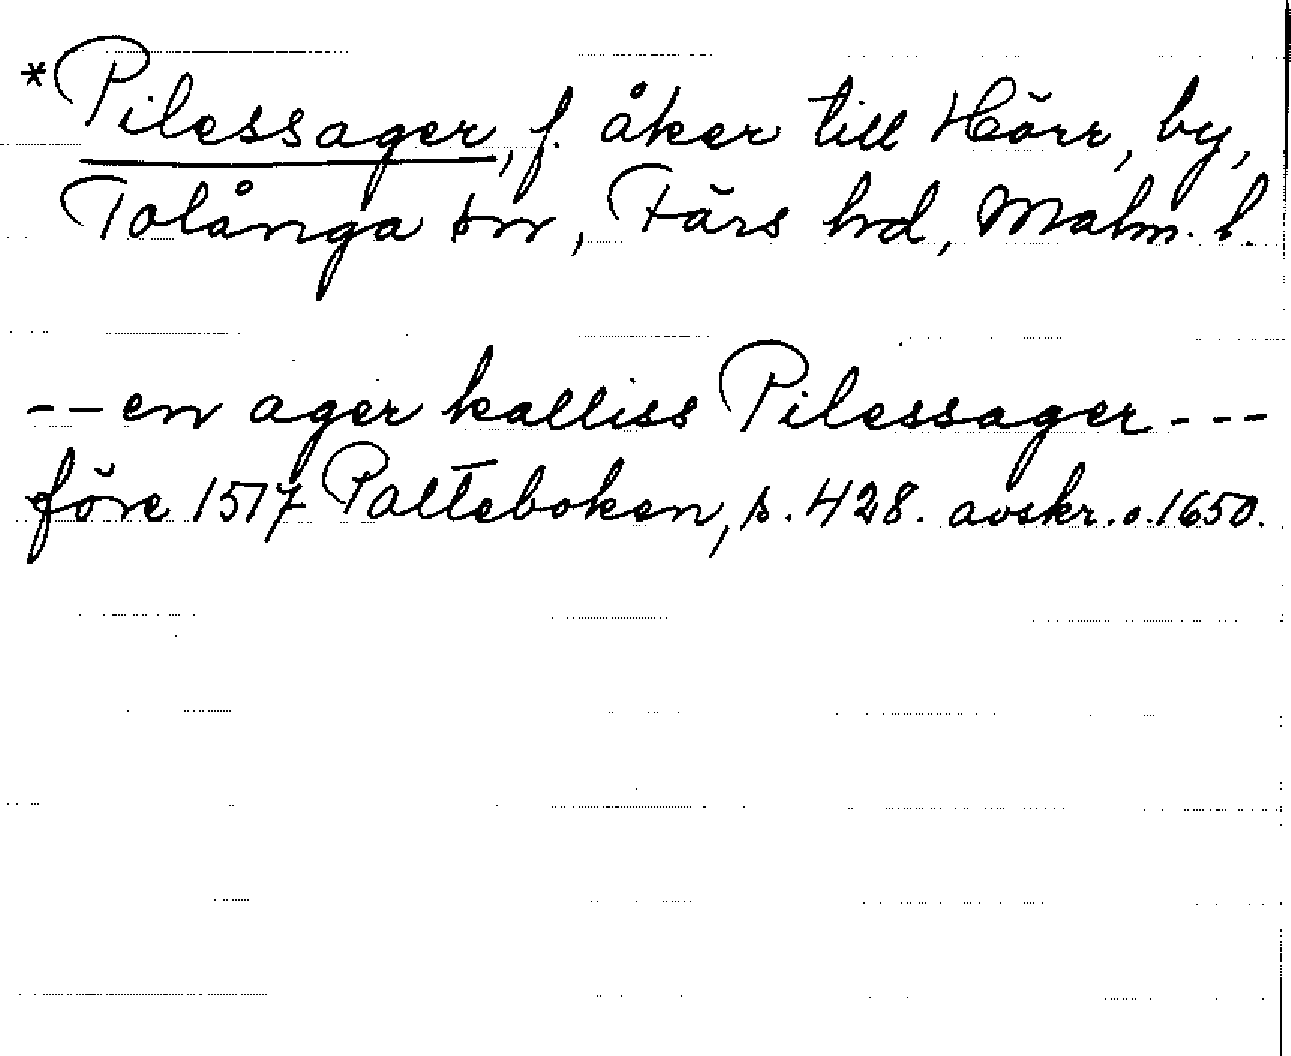 *Pilessager, f. åker till Hörr, by,
Tolånga sn, Färs hd, Malm. l.
-- en ager kalliss Pilessager ---
före 1517 Palteboken, s. 428. avskr. o. 1650.